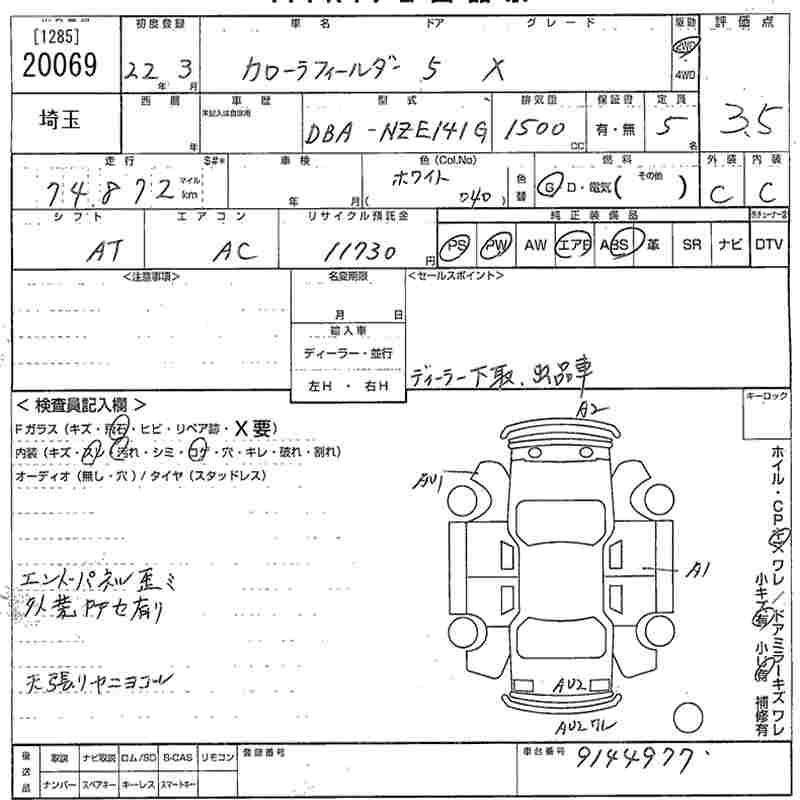 [1285]
20069
初度登録 車名 ドア グレード 駆動 評価点
22年 3月 カローラフィールダー 5 X 2WD 4WD 3.5
埼玉
西暦 車歴 型式 排気量 保証書 定員
未記入は自家用
年 DBA-NZE141G 1500 CC 有・無 5名
走行 S#* 車検 色(Col.No) 燃料 外装 内装
74,872 マイル km 年 月 ホワイト (040) 色替 G D・電気( その他 ) C C
シフト エアコン リサイクル預託金 純正装備品
AT AC 11730円 PS PW AW エアB ABS 革 SR ナビ DTV
<注意事項> 名変期限 <セールスポイント>
月 日
輸入車
ディーラー・並行
左H ・ 右H
ディーラー下取、出品車
< 検査員記入欄 > キーロック
Fガラス (キズ・飛石・ヒビ・リペア跡・X要)
内装 (キズ・スレ・汚れ・シミ・コゲ・穴・キレ・破れ・割れ)
オーディオ (無し・穴) / タイヤ (スタッドレス)
エンドパネル歪ミ
外装 有り
天張りヤニヨゴレ
A2
AU1
A1
AU2
AU2 ワレ
ホイル・CPキズ ワレ / ドアミラーキズ ワレ
小キズ有 小凹有 補修有
後送品 取説 ナビ取説 ロム/SD S-CAS リモコン 登録番号 車台番号 9144977
ナンバー スペアキー キーレス スマートキー